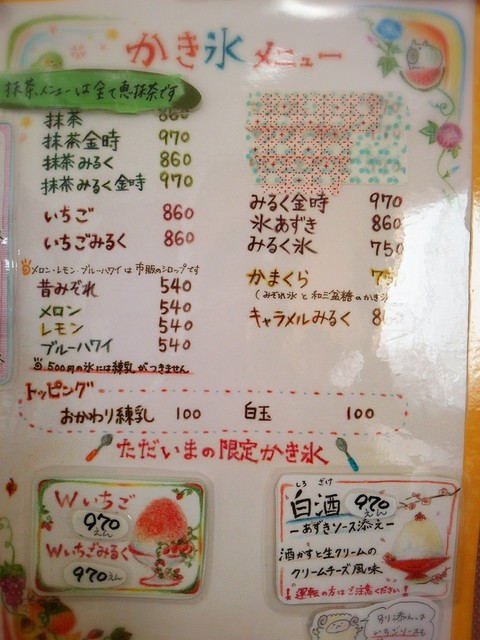 かき氷メニュー
抹茶メニューは全て恵抹茶です
抹茶 860
抹茶金時 970
抹茶みるく 860
抹茶みるく金時 970
いちご 860
いちごみるく 860
メロン・レモン・ブルーハワイは市販のシロップです
昔みぞれ 540
メロン 540
レモン 540
ブルーハワイ 540
500円の氷には練乳がつきません
みるく金時 970
氷あずき 860
みるく氷 750
かまくら
(みぞれ氷と和三盆糖のかき氷
キャラメルみるく
トッピング
おかわり練乳 100 白玉 100
ただいまの限定かき氷
Wいちご
970えん
Wいちごみるく
970えん
しろ ざけ
白酒 970えん
ーあずきソース添えー
酒かすと生クリームの
クリームチーズ風味
!運転の方はご注意ください!
いちごソースも